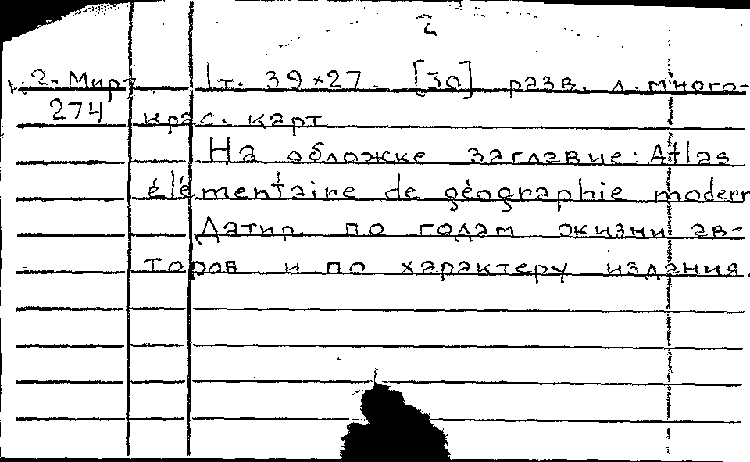 2
2-Мирт 1т. 39×27. [30] разв. л. много-
274 крас. карт
На обложке заглавие: Atlas
élémentaire de géographie modern
Датир. по годам жизни ав-
торов и по характеру издания.